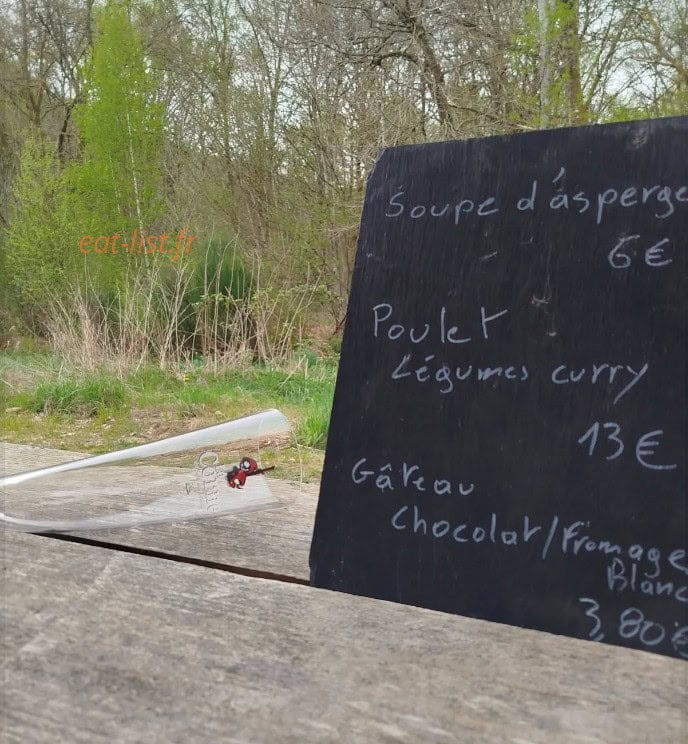 eat-list.fr
Soupe d'ásperge
6€
Poulet
Légumes curry
13€
Gâteau
Chocolat/Fromage
Blanc
3,80€